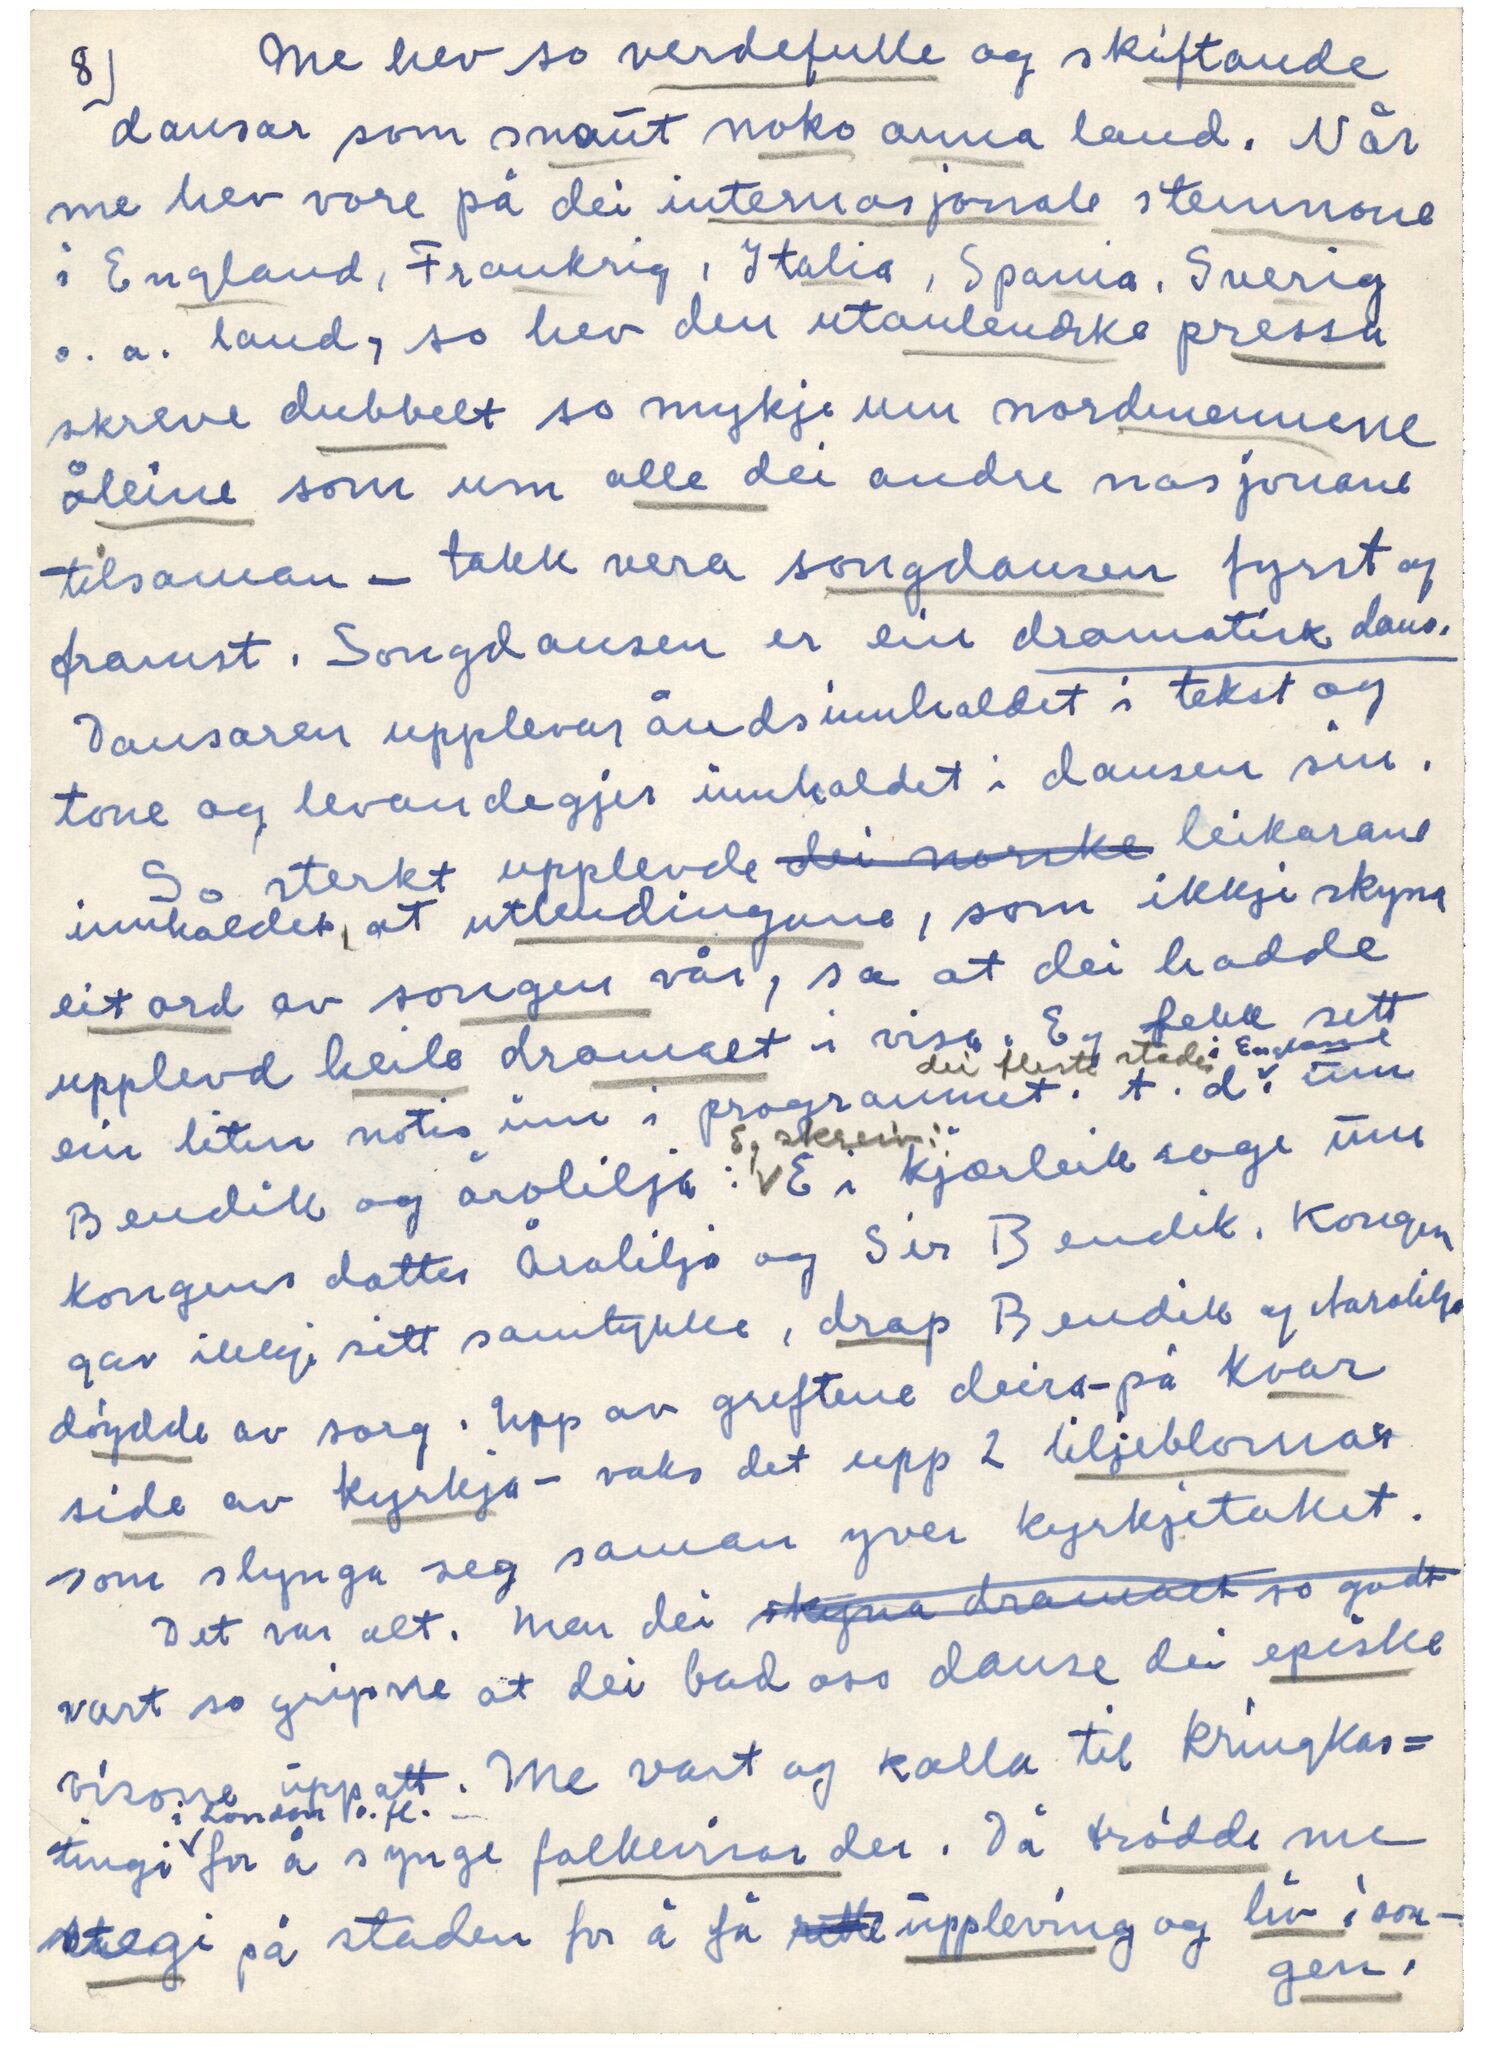 8) Me hev so verdefulle og skiftande
dansar som snaut noko anna land. Når
me hev vore på dei internasjonale stemnone
i England, Frankrig, Italia, Spania, Sverig
o. a. land, so hev den utanlendske pressa
skreve dubbelt so mykje um nordmennene
åleine som um alle dei andre nasjonane
tilsaman – takk vera songdansen fyrst og
framst. Songdansen er ein dramatisk dans.
Dansaren upplevar åndsinnhaldet i tekst og
tone og levandegjer innhaldet i dansen sin.
So sterkt upplevde dei norske leikarane
innhaldet, at utlendingane, som ikkje skyna
eit ord av songen vår, sa at dei hadde
upplevd heile dramaet i visa. Eg fekk sett
dei fleste stader i England
ein liten notis inn i programmet. t. d. um
Eg skreiv:
Bendik og årolilja: "Ei kjærleiksoge um
kongens dotter Årolilja og Sir Bendik. Kongen
gav ikkje sitt samtykke, drap Bendik og Aarolilja
døydde av sorg. Upp av greftene deira – på kvar
side av kyrkja – vaks det upp 2 liljeblomar
som slynga seg saman yver kyrkjetaket.
Det var alt. Men dei skyna dramaet so godt
vart so gripne at dei bad oss danse dei episke
visone uppatt. Me vart og kalla til kringkas=
i London o. fl.
tingi for å synge folkevisor der. Då trødde me
stegi på staden for å få uppleving og liv i son-
gen.